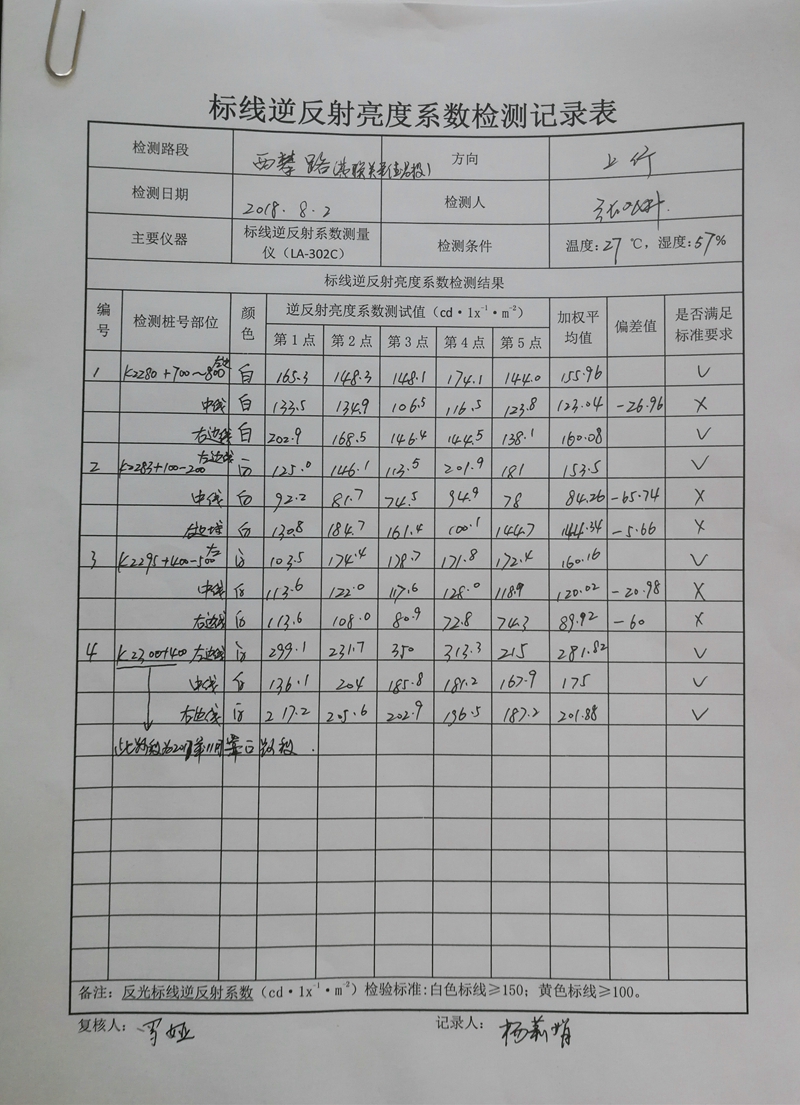 标线逆反射亮度系数检测记录表
检测路段 西攀路 方向 上行
检测日期 2018.8.2 检测人
主要仪器 标线逆反射系数测量仪（LA-302C） 检测条件 温度:27℃，湿度:57%
标线逆反射亮度系数检测结果
编号 检测桩号部位 颜色 逆反射亮度系数测试值（cd·1x⁻¹·m⁻²） 加权平均值 偏差值 是否满足标准要求
第1点 第2点 第3点 第4点 第5点
1 K2280+700~800左边 白 165.3 148.3 148.1 174.1 144.0 155.96 √
中线 白 133.5 134.9 106.5 116.5 123.8 123.04 -26.96 ×
右边线 白 202.9 168.5 146.4 144.5 138.1 160.08 √
2 K2283+100-200左边线 白 125.0 146.1 113.5 201.9 181 153.5 √
中线 白 92.2 81.7 74.5 94.9 78 84.26 -65.74 ×
右边线 白 130.8 184.7 161.4 100.1 144.7 144.34 -5.66 ×
3 K2295+400-500左 白 103.5 174.4 178.7 171.8 172.4 160.16 √
中线 白 113.6 122.0 117.6 128.0 118.9 120.02 -20.98 ×
右边线 白 113.6 108.0 80.9 72.8 74.3 89.92 -60 ×
4 K2300+400 左边线 白 299.1 231.7 350 313.3 215 281.82 √
中线 白 136.1 204 185.8 181.2 167.9 175 √
右边线 白 217.2 205.6 202.9 196.5 187.2 201.88 √
此路段为
路段.
备注：反光标线逆反射系数（cd·1x⁻¹·m⁻²）检验标准:白色标线≥150；黄色标线≥100。
复核人: 罗娅 记录人: